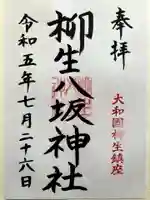 奉拝
大和國柳生鎮座
柳生八坂神社
令和五年七月二十六日